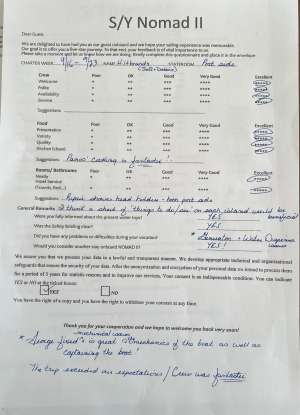 S/Y Nomad II
Dear Guest,
We are delighted to have had you as our guest onboard and we hope your sailing experience was memorable.
Our goal is to offer you a five-star journey. To that end, your feedback is of vital importance to us.
Please take a moment and let us know how we are doing. Kindly complete this questionnaire and place it in the envelope
CHARTER WEEK 9/16 – 9/23 NAME STATEROOM Port side
Crew Poor OK Good Very Good Excellent
Welcome * ** *** **** *****
Polite * ** *** **** *****
Availability * ** *** **** *****
Service * ** *** **** *****
Suggestions
Food Poor OK Good Very Good Excellent
Presentation * ** *** **** *****
Variety * ** *** **** *****
Quality * ** *** **** *****
Suggestions: cooking is fantastic!
Rooms/ Bathrooms Poor OK Good Very Good Excellent
Suggestions: Repair shower head holder - both port side
General Remarks A sheet of things to do/see on each island would be beneficial
Were you fully informed about the present some tops? YES
Was the Safety Briefing clear? YES
Did you have any problems or difficulties during your vacation? * Generator + Water
Would you consider another stay onboard NOMAD II? YES
We assure you that we process your data in a lawful and transparent manner. We develop appropriate technical and organizational
safeguards that ensure the security of your data. After the anonymization and encryption of your personal data we intend to process them
for a period of 5 years for statistic reasons and to improve our services. Your consent is an indispensable condition. You can indicate
YES or NO at the ticked boxes:
YES NO
You have the right of a copy and you have the right to withdraw your consent at any time.
Thank you for your cooperation and we hope to welcome you back very soon!
* is great @ mechanics of the boat as well as
captaining the boat!
The trip exceeded our expectations / Crew was fantastic